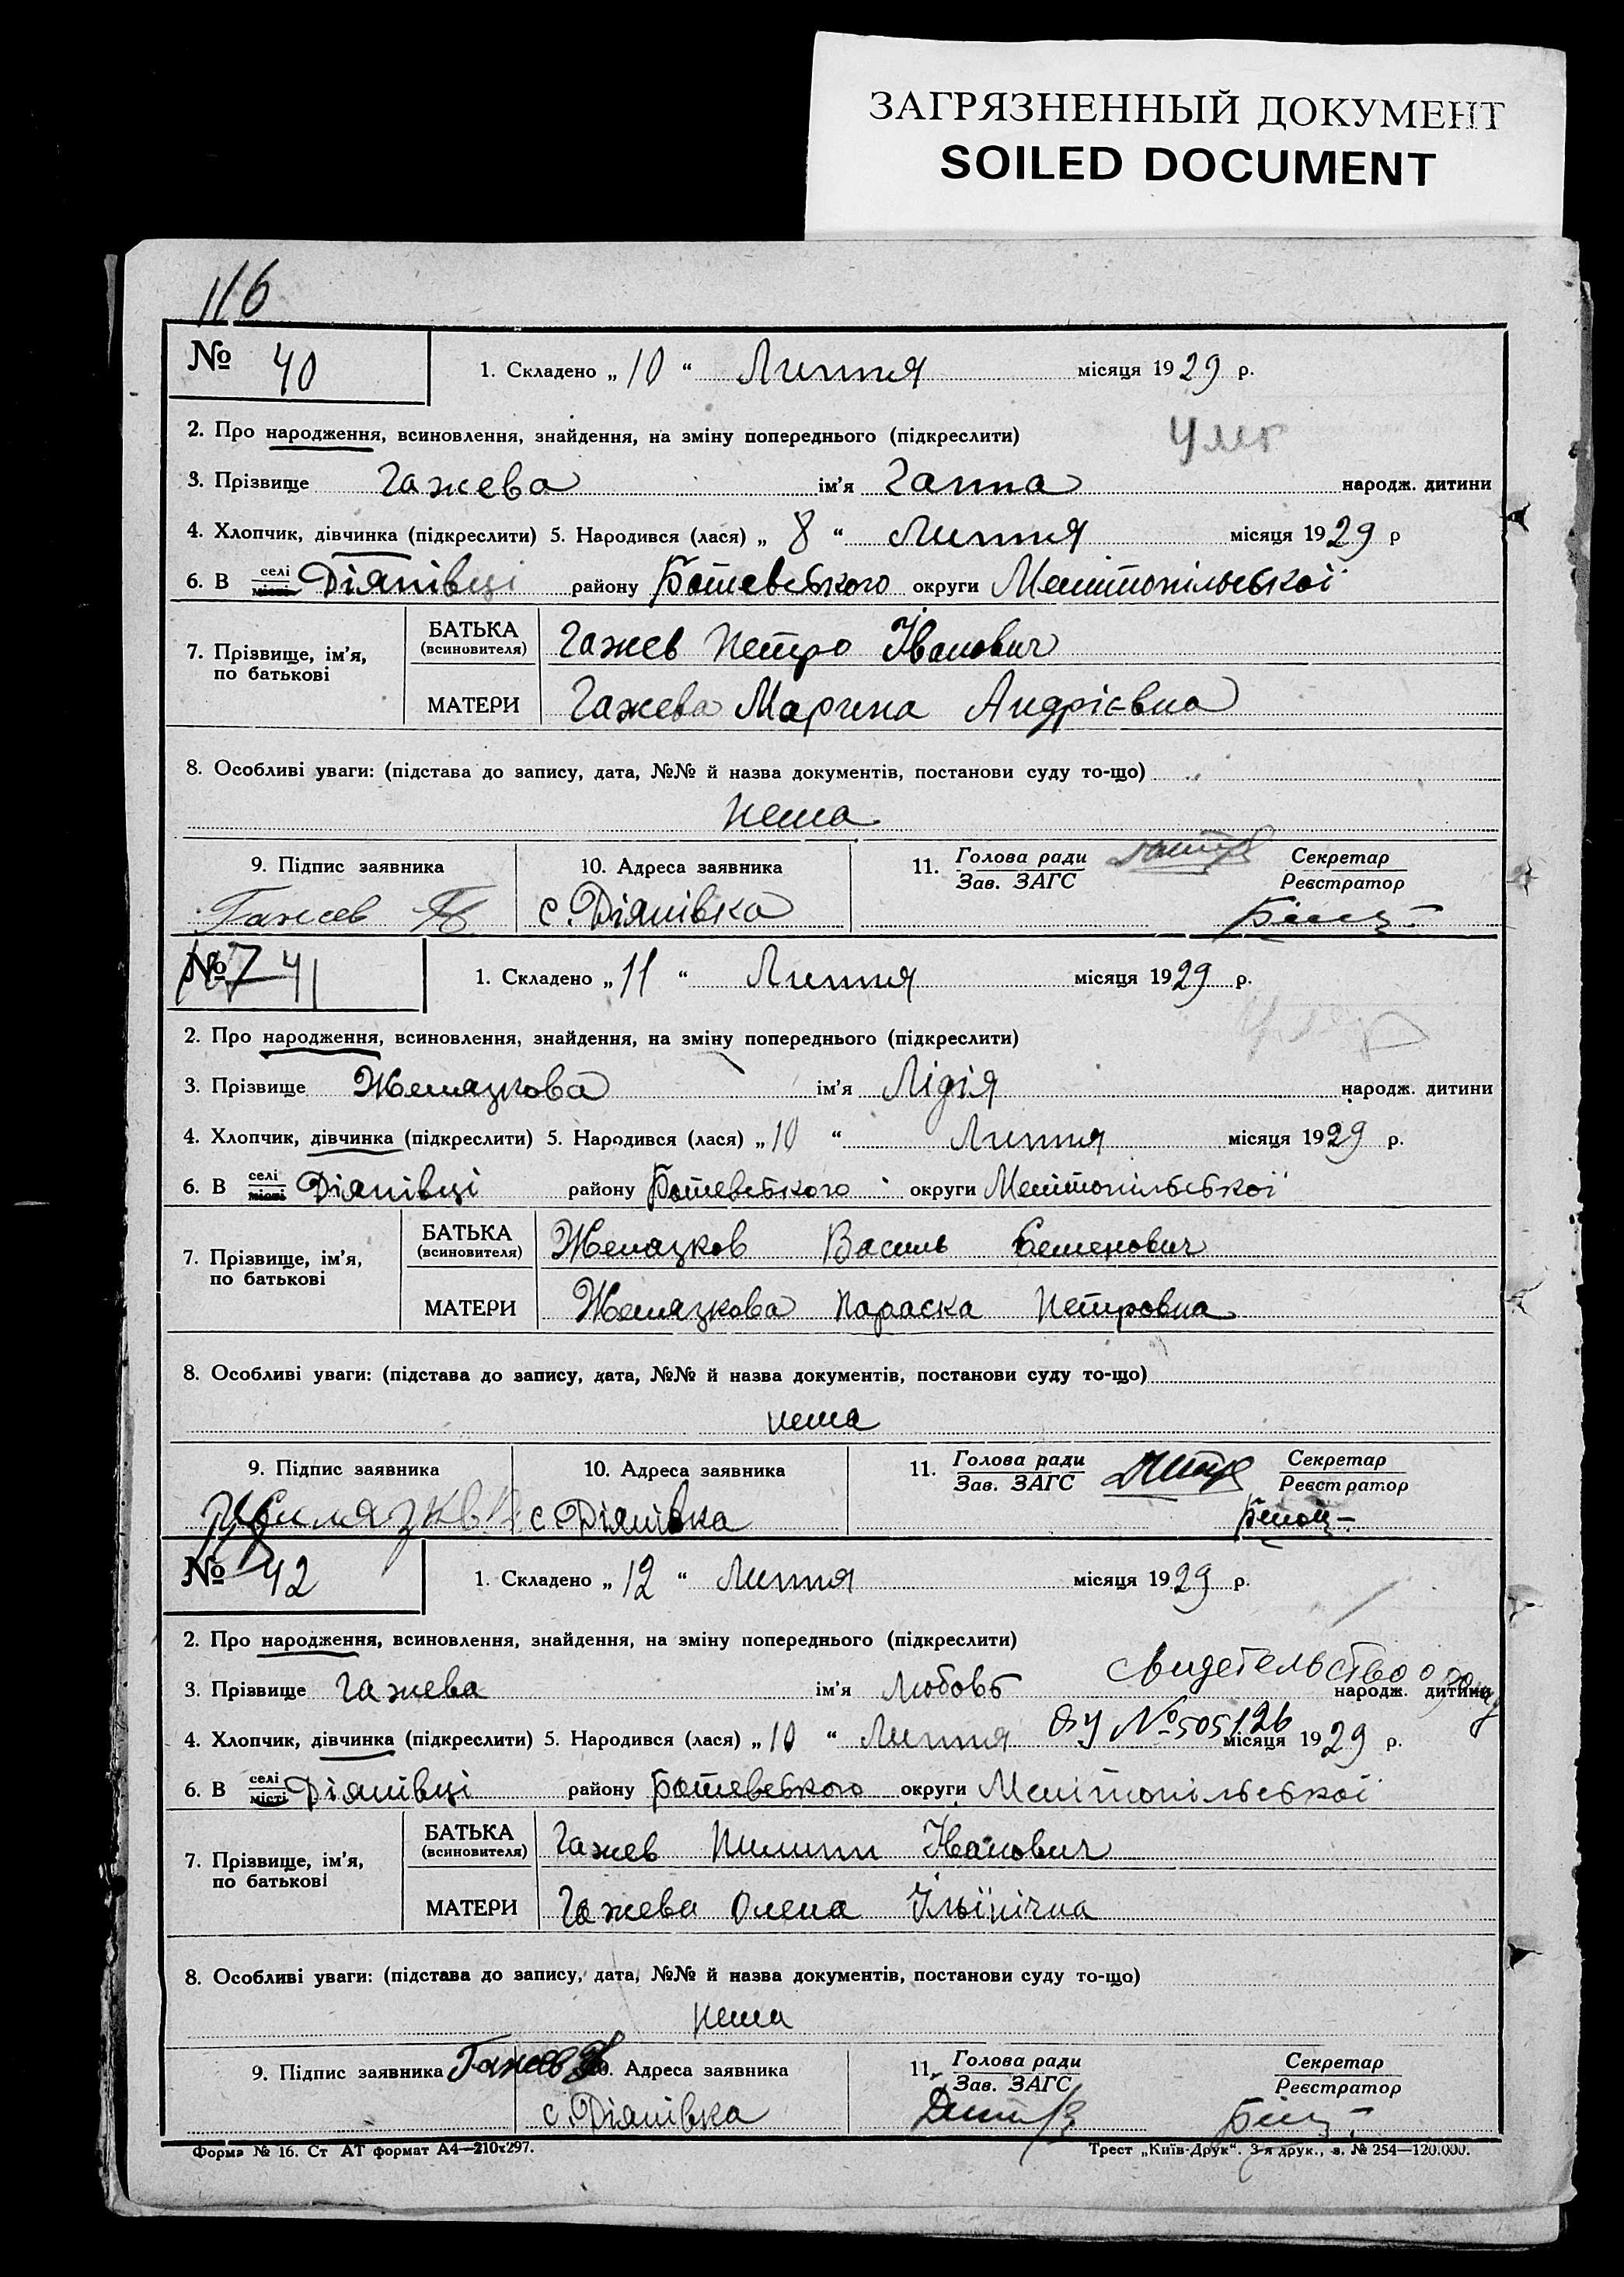 ЗАГРЯЗНЕННЫЙ ДОКУМЕНТ
SOILED DOCUMENT
116
№ 40
1. Складено „ 10 “ Липня місяця 1929 р.
2. Про народження, всиновлення, знайдення, на зміну попереднього (підкреслити)
3. Прізвище Гажева ім’я Ганна народж. дитини
4. Хлопчик, дівчинка (підкреслити) 5. Народився (лася) „ 8 “ Липня місяця 1929 р
6. В селі місті Діянівці району Ботевського округи Мелітопільської
7. Прізвище, ім’я, по батькові
БАТЬКА (всиновителя) Гажев Петро Іванович
МАТЕРИ Гажева Марина Андрієвна
8. Особливі уваги: (підстава до запису, дата, №№ й назва документів, постанови суду то-що)
нема
9. Підпис заявника 10. Адреса заявника 11. Голова ради Зав. ЗАГС Секретар Реєстратор
Гажев с. Діянівка
№ 41
117
1. Складено „ 11 “ Липня місяця 1929 р.
2. Про народження, всиновлення, знайдення, на зміну попереднього (підкреслити)
3. Прізвище Желязкова ім’я Лідія народж. дитини
4. Хлопчик, дівчинка (підкреслити) 5. Народився (лася) „ 10 “ Липня місяця 1929 р.
6. В селі місті Діянівці району Ботевського округи Мелітопільської
7. Прізвище, ім’я, по батькові
БАТЬКА (всиновителя) Желязков Василь Семенович
МАТЕРИ Желязкова Параска Петровна
8. Особливі уваги: (підстава до запису, дата, №№ й назва документів, постанови суду то-що)
нема
9. Підпис заявника 10. Адреса заявника 11. Голова ради Зав. ЗАГС Секретар Реєстратор
с Діянівка
118
№ 42
1. Складено „ 12 “ Липня місяця 1929 р.
2. Про народження, всиновлення, знайдення, на зміну попереднього (підкреслити)
Свидетельство о
3. Прізвище Гажева ім’я Любовь народж. дитини
№ 505126
4. Хлопчик, дівчинка (підкреслити) 5. Народився (лася) „ 10 “ Липня місяця 1929 р.
6. В селі місті Діянівці району Ботевського округи Мелітопільської
7. Прізвище, ім’я, по батькові
БАТЬКА (всиновителя) Гажев Пилип Іванович
МАТЕРИ Гажева Олена Ільїнічна
8. Особливі уваги: (підстава до запису, дата, №№ й назва документів, постанови суду то-що)
нема
9. Підпис заявника Гажев 10. Адреса заявника 11. Голова ради Зав. ЗАГС Секретар Реєстратор
с. Діянівка
Форма № 16. Ст АТ формат А4—210x297.
Трест „Київ-Друк“. 3-я друк., з. № 254—120.000.